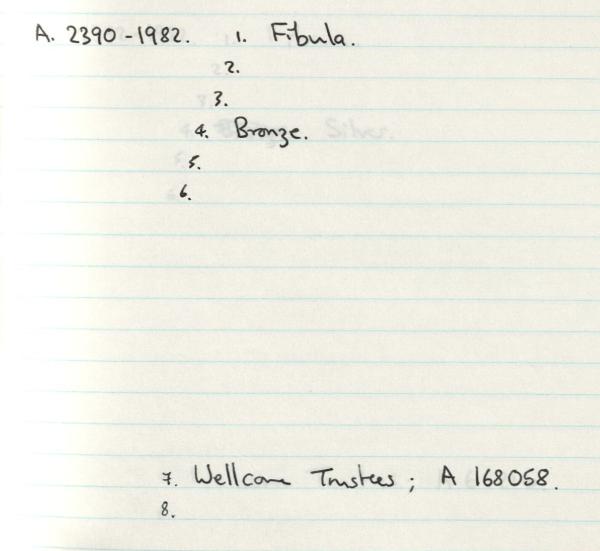 A. 2390-1982. 1. Fibula.
2.
3.
4. Bronze.
5.
6.
7. Wellcome Trustees; A 168058.
8.